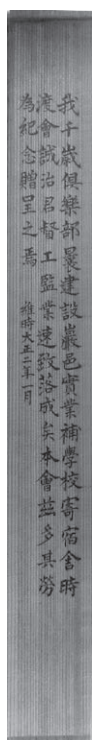 我千歳倶樂部曩建設巖邑實業補學校寄宿舍時
渡會誠治君督工監業速致落成矣本會玆多其勞
為紀念贈呈之焉　維時大正二年一月